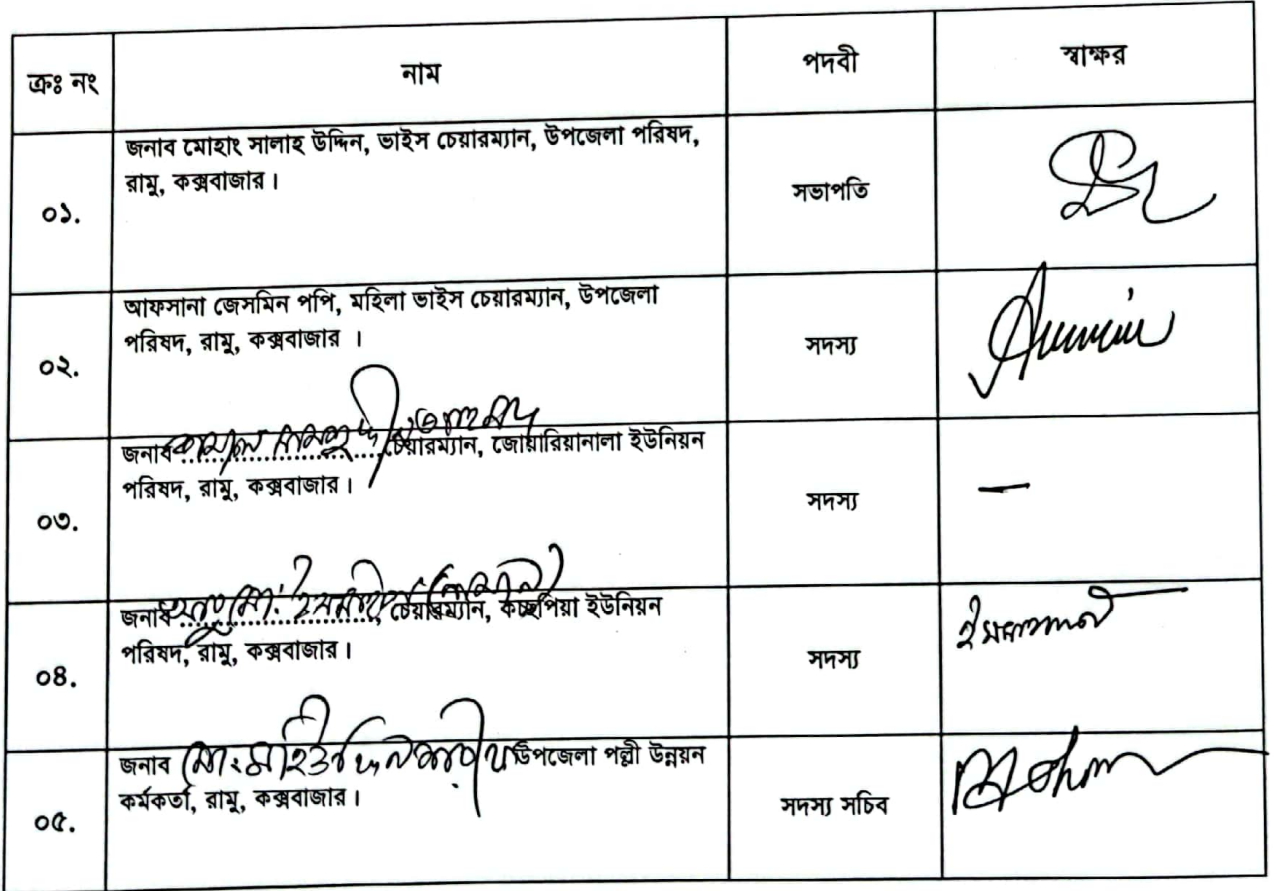 ক্রঃ নং নাম পদবী স্বাক্ষর
জনাব মোহাং সালাহ উদ্দিন, ভাইস চেয়ারম্যান, উপজেলা পরিষদ,
রামু, কক্সবাজার।
০১. সভাপতি
আফসানা জেসমিন পপি, মহিলা ভাইস চেয়ারম্যান, উপজেলা
পরিষদ, রামু, কক্সবাজার ।
০২. সদস্য
জনাব কামাল শামসুদ্দীন আহমেদ চেয়ারম্যান, জোয়ারিয়ানালা ইউনিয়ন
পরিষদ, রামু, কক্সবাজার।
০৩. সদস্য –
জনাব আবু মো: ইসমাঈল (নোমান) চেয়ারম্যান, কচ্ছপিয়া ইউনিয়ন
পরিষদ, রামু, কক্সবাজার।
০৪. সদস্য
জনাব মো: মহিউদ্দিন উপজেলা পল্লী উন্নয়ন
কর্মকর্তা, রামু, কক্সবাজার।
০৫. সদস্য সচিব